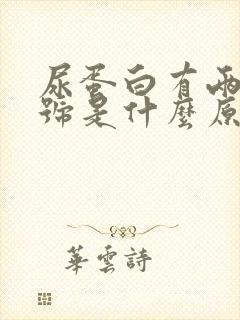 尿蛋白有兩
號是什麼原
華雲詩